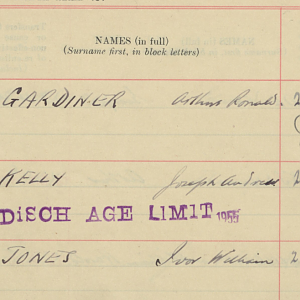 NAMES (in full)
(Surname first, in block letters)
GARDINER Arthur Ronald. 2
KELLY Joseph Andrew 2
DiSCH AGE LIMIT 1955
JONES Ivor William 2